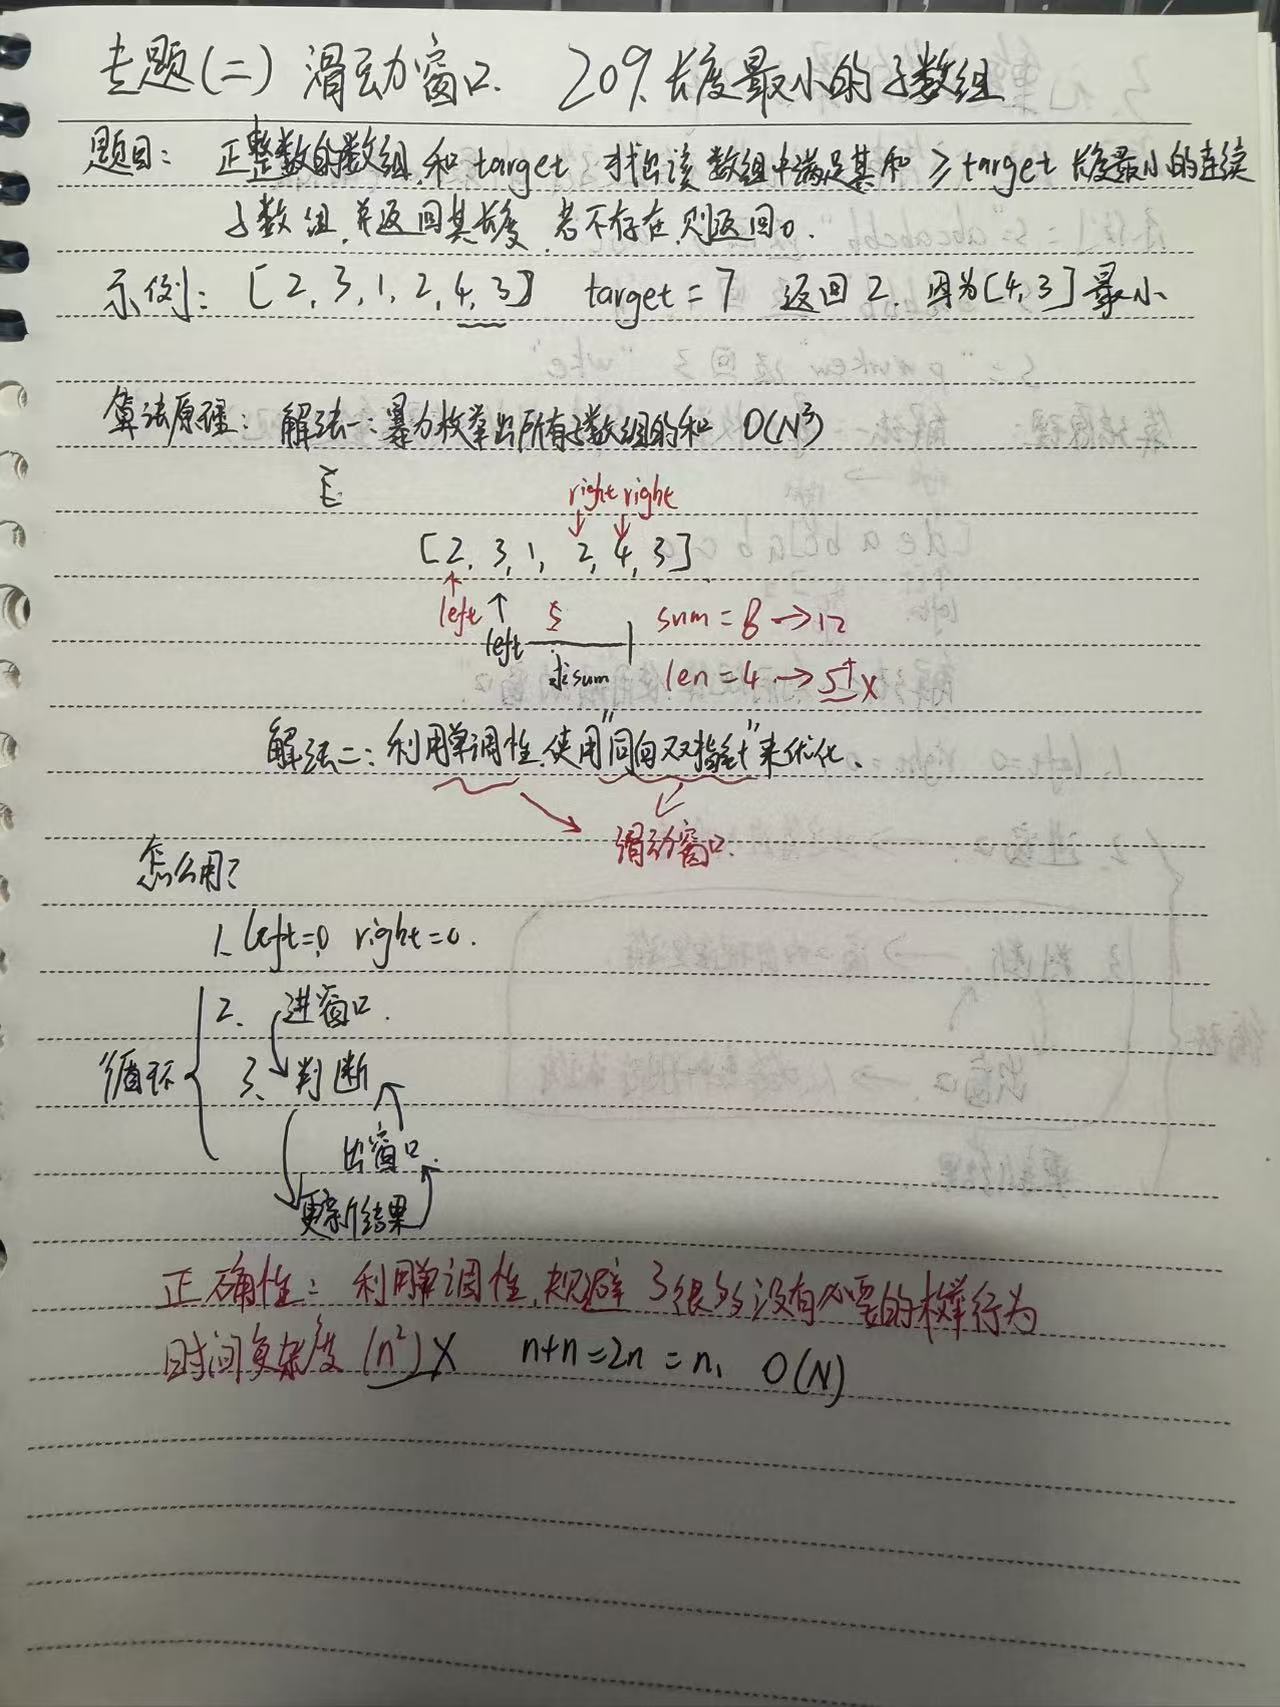 专题(二) 滑动窗口. 209. 长度最小的子数组
题目: 正整数的数组,和target 找出该数组中满足其和≥target 长度最小的连续
子数组,并返回其长度,若不存在,则返回0.
示例: [2, 3, 1, 2, 4, 3] target = 7 返回2. 因为[4, 3]最小
算法原理: 解法一: 暴力枚举出所有子数组的和 O(N³)
right right
[2, 3, 1, 2, 4, 3]
left 5 sum = 8 → 12
left 求sum len = 4 → 5↑ X
解法二: 利用单调性,使用"同向双指针"来优化.
滑动窗口.
怎么用?
1. left=0 right=0.
2. 进窗口.
循环 3. 判断
出窗口.
更新结果
正确性: 利用单调性,规避了很多没有必要的枚举行为
时间复杂度 (n²) X n+n=2n=n, O(N)